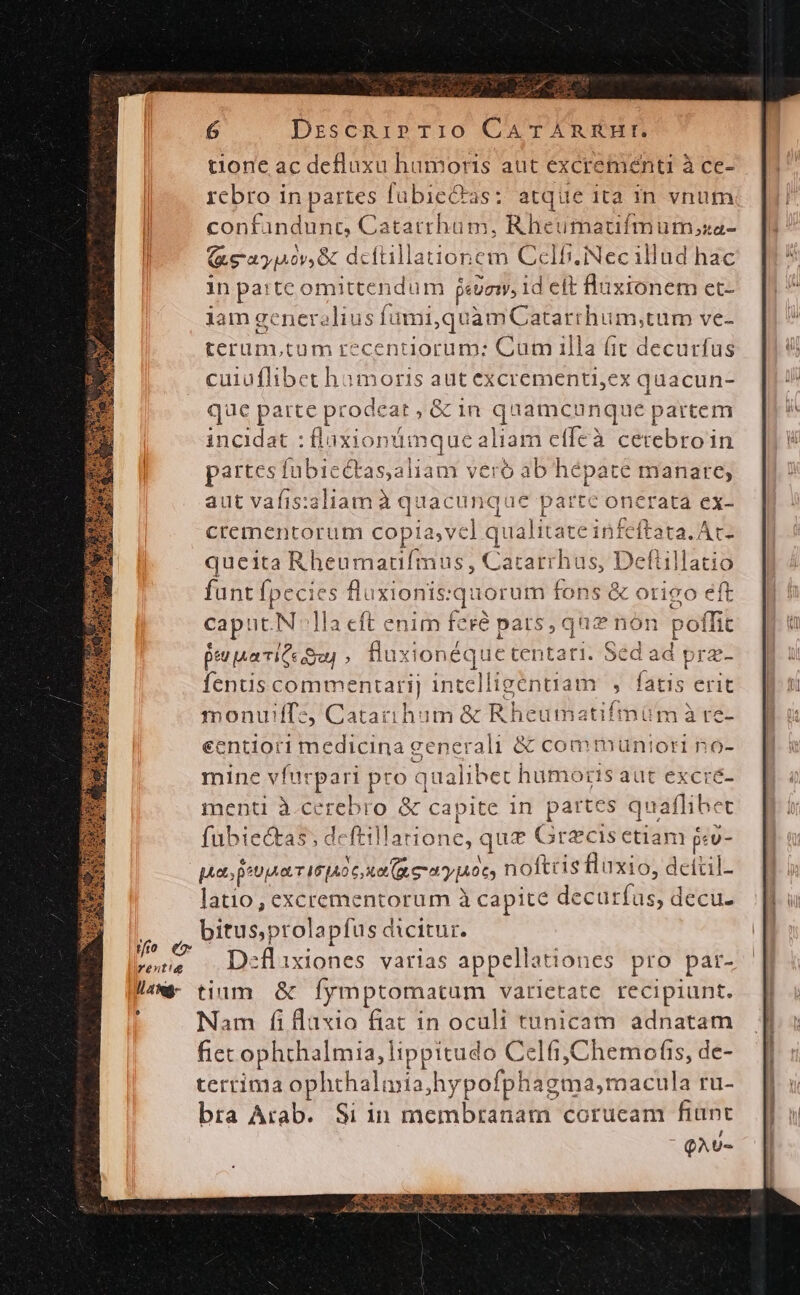 6 DESCRIPTIO CATARRHI.
tione ac defluxu humoris aut excrementi à ce-
rebro in partes ſubiectas: atque ita in vnum
confundunt, Catarrhum, Rheumatiſmum, κα-
ταςαγμὸν, & deſtillationem Celſi. Nec illud hac
in parte omittendum ῥεῦσιν, id eſt fluxionem et-
iam generalius ſumi, quàm Catarrhum, tum ve-
terum, tum recentiorum: Cum illa ſit decurſus
cuiuſlibet humoris aut excrementi, ex quacun-
que parte prodeat, & in quamcunque partem
incidat: fluxionúmque aliam eſſe à cerebro in
partes ſubiectas, aliam verò ab hepate manare,
aut vaſis: aliam à quacunque parte onerata ex-
crementorum copia, vel qualitate infeſtata. At-
que ita Rheumatiſmus, Catarrhus, Deſtillatio
ſunt ſpecies fluxionis: quorum fons & origo eſt
caput. Nulla eſt enim ferè pars, quæ non poſſit
ῥευματίζεσθαι, fluxionéque tentari. Sed ad præ-
ſentis commentarij intelligentiam, ſatis erit
monuiſſe, Catarrhum & Rheumatiſmum à re-
centiori medicina generali & communiori no-
mine vſurpari pro qualibet humoris aut excre-
menti à cerebro & capite in partes quaſlibet
ſubiectas, deſtillatione, quæ Græcis etiam ῥεῦ-
μα, ῥευματισμὸς, καταςαγμὸς, noſtris fluxio, deſtil-
latio, excrementorum à capite decurſus, decu-
bitus, prolapſus dicitur.
Defluxiones varias appellationes pro par-
tium & ſymptomatum varietate recipiunt.
Nam ſi fluxio fiat in oculi tunicam adnatam
fiet ophthalmia, lippitudo Celſi, Chemoſis, de-
terrima ophthalmia, hypoſphagma, macula ru-
bra Arab. Si in membranam corneam fiunt
φλυ-